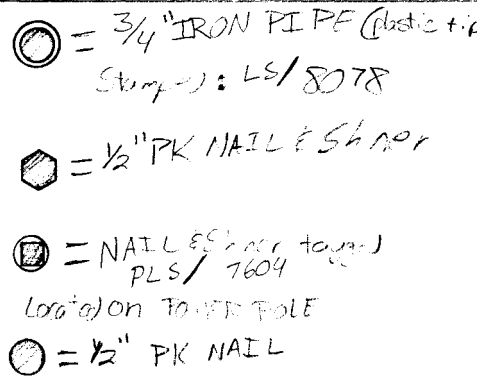 = 3/4" IRON PIPE (plastic tip
Stamped): LS/8078
= 1/2" PK NAIL & Shner
= NAIL & Shner tagged
PLS/ 7604
Located on POWER POLE
= 1/2" PK NAIL